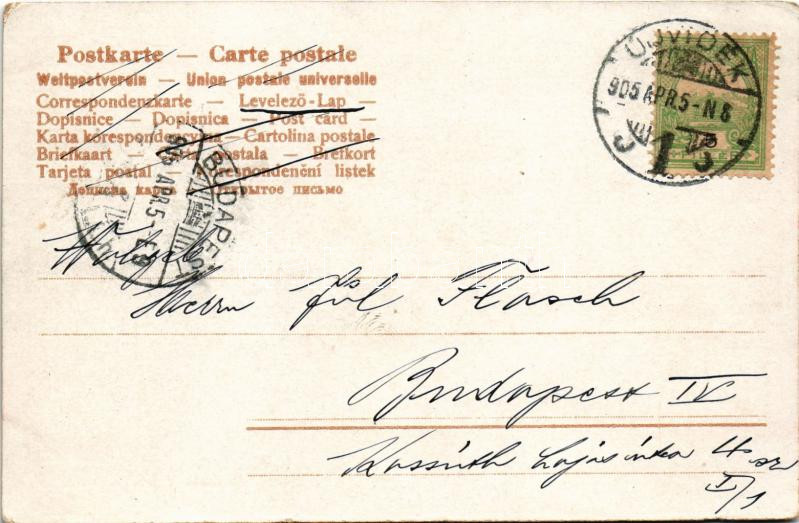 Postkarte — Carte postale
Weltpostverein — Union postale universelle
Correspondenzkarte — Levelező-Lap —
Dopisnice — Dopisnica — Post card —
Karta korespondencyjna — Cartolina postale
Briefkaart — Carta postala — Brefkort
Tarjeta postal — Korespondenční listek
Дописна карта — Открытое письмо
UJVIDÉK
905 APR.5-N8
BUDAPEST
905 APR.5
Herrn Jul Flasch
Budapest IV
Kossúth Lajos útca 4 sz
I/1